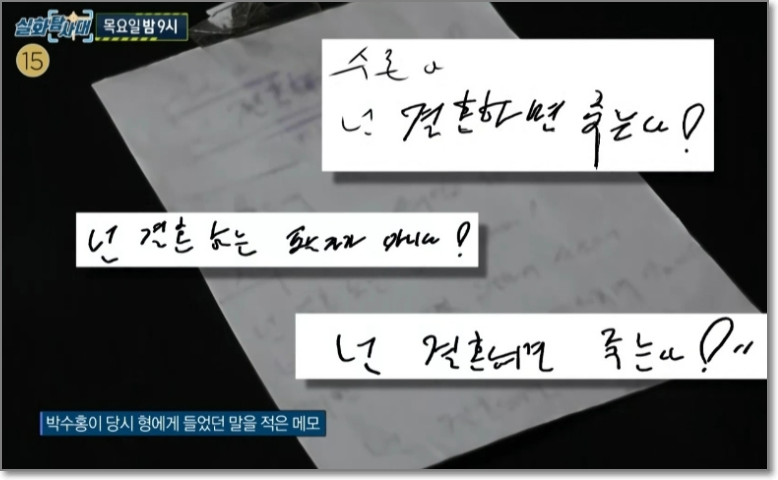 실화탐사대 목요일 밤 9시
15
수홍아
넌 결혼하면 죽는다!
넌 결혼하는 팔자가 아니다!
넌 결혼하면 죽는다!"
박수홍이 당시 형에게 들었던 말을 적은 메모